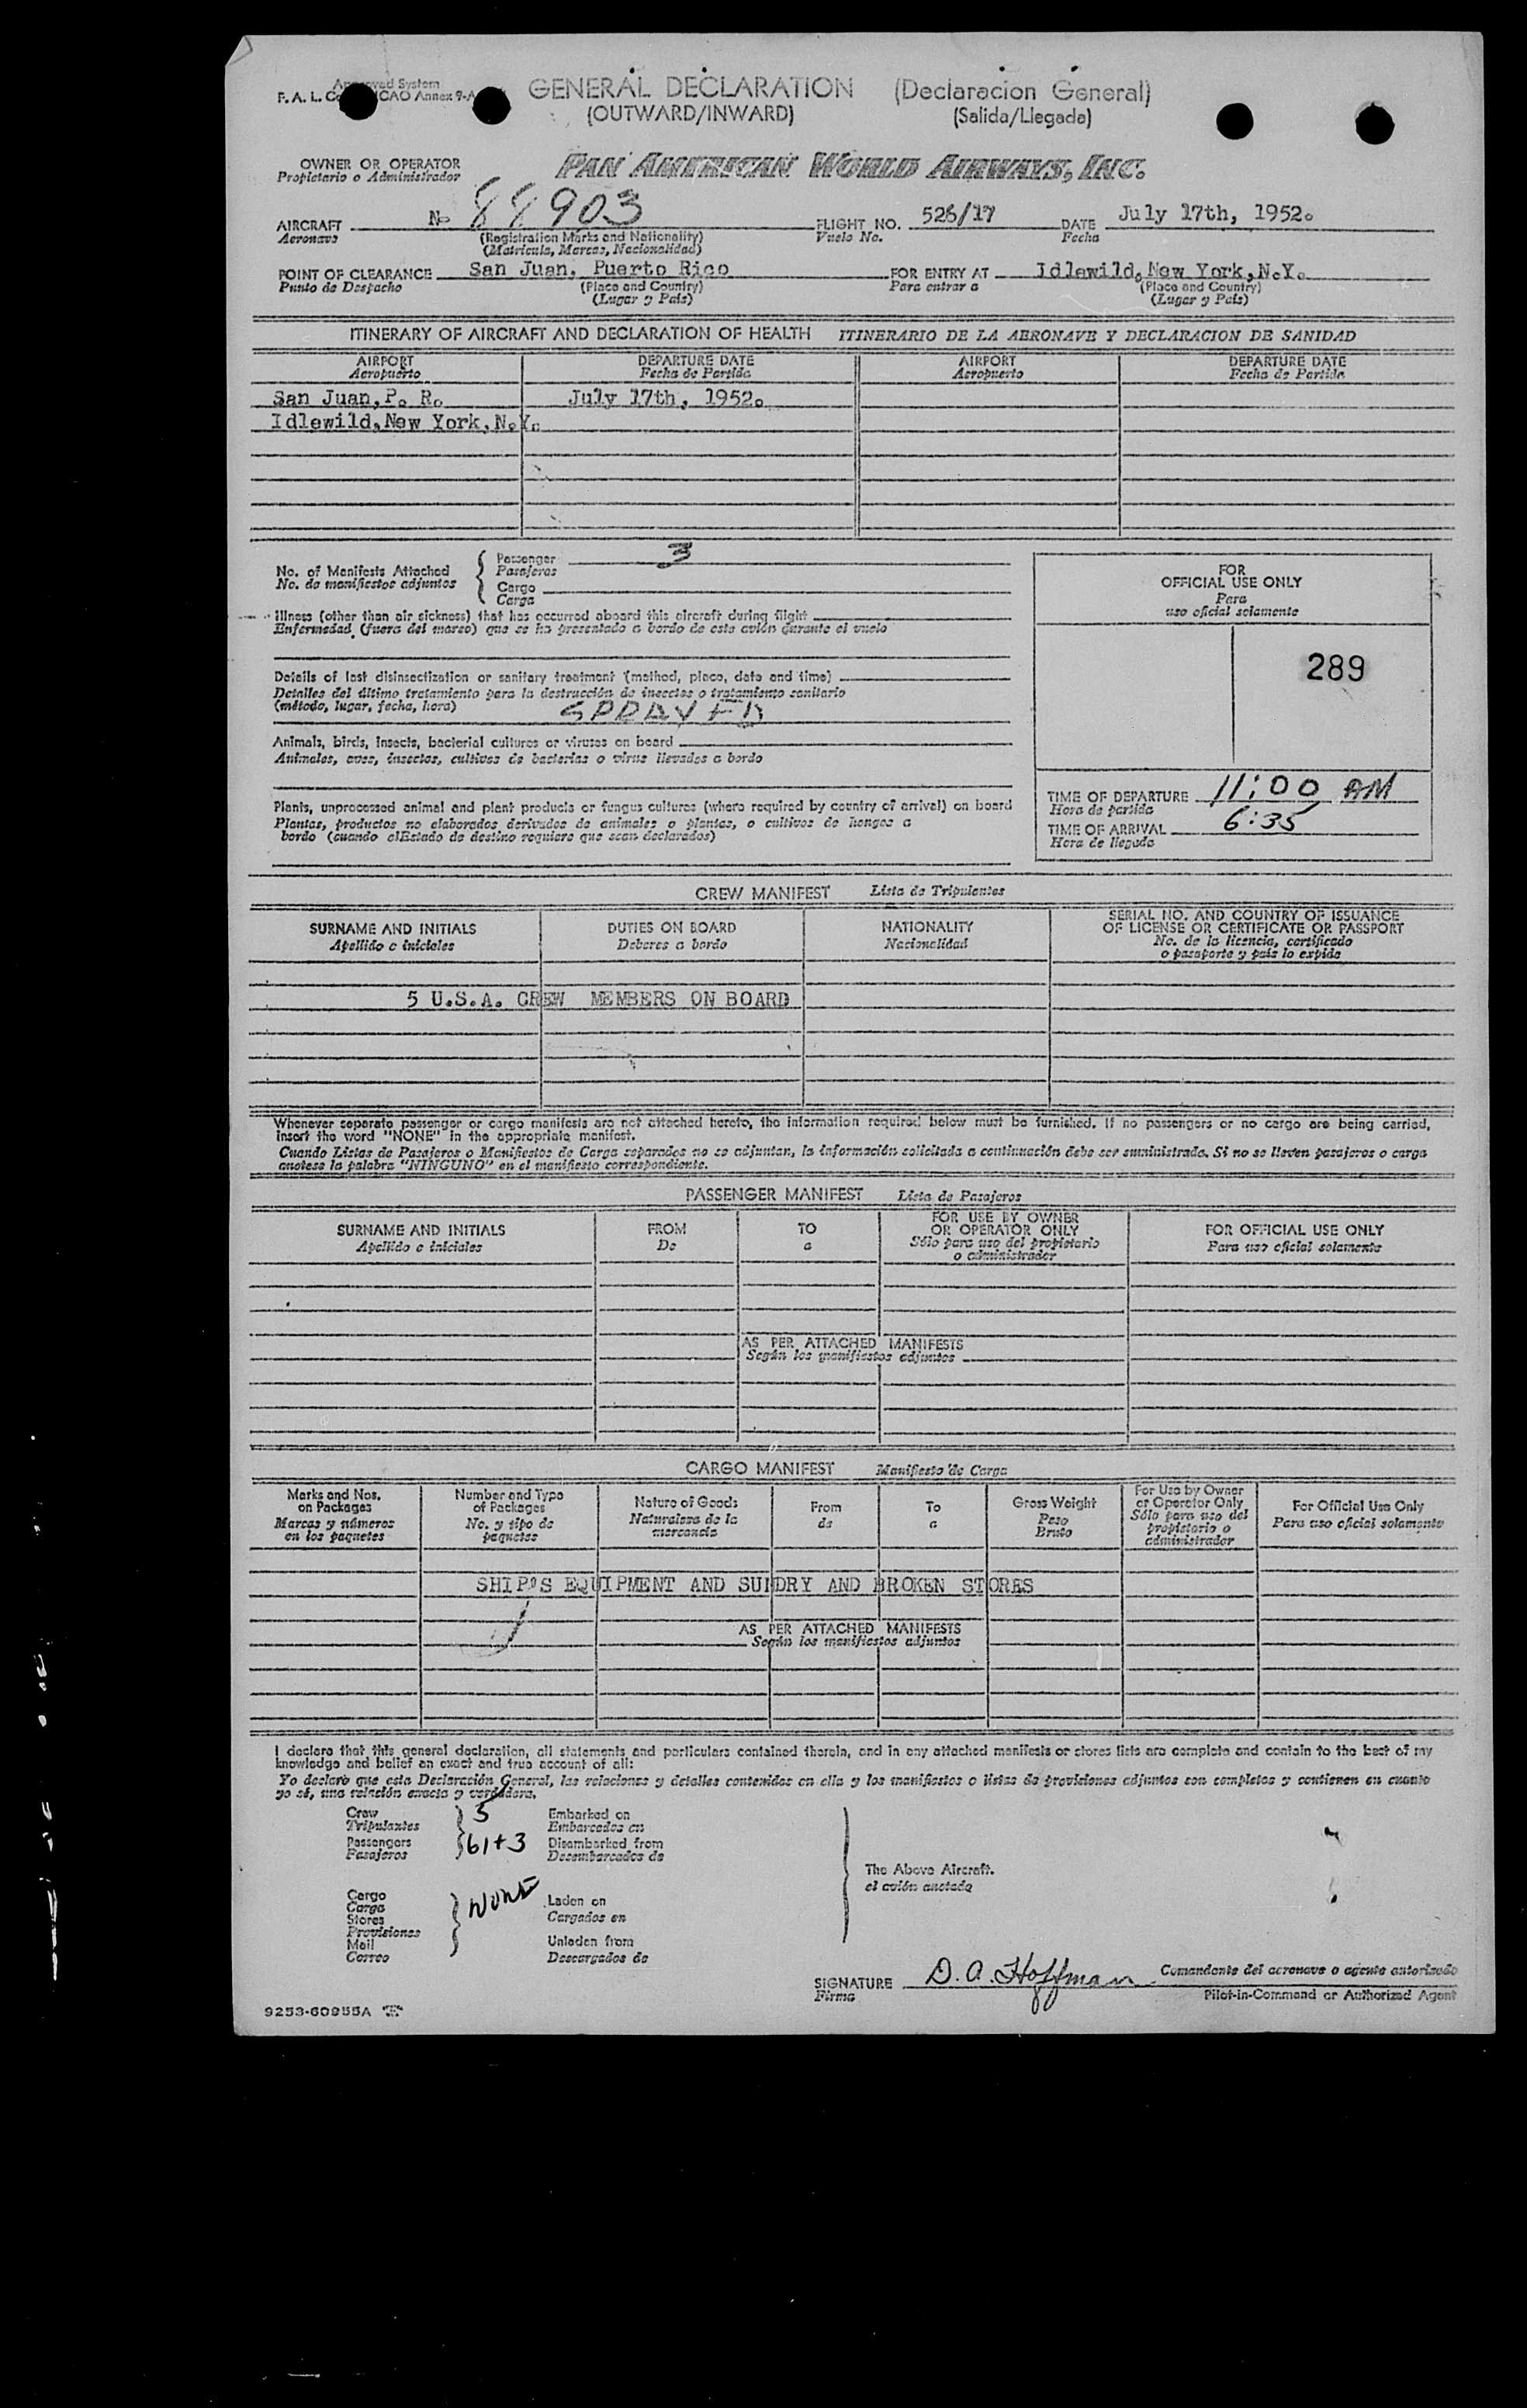 Approved System
F. A. L. Co ICAO Annex 9-A
GENERAL DECLARATION (Declaracion General)
(OUTWARD/INWARD) (Salida/Llegada)
OWNER OR OPERATOR PAN AMERICAN WORLD AIRWAYS, INC.
Propietario o Administrador
AIRCRAFT No 88903 FLIGHT NO. 526/17 DATE July 17th, 1952.
Aeronave (Registration Marks and Nationality) Vuelo No. Fecha
(Matricula, Marcas, Nacionalidad)
POINT OF CLEARANCE San Juan, Puerto Rico FOR ENTRY AT Idlewild, New York, N.Y.
Punto de Despacho (Place and Country) Para entrar a (Place and Country)
(Lugar y Pais) (Lugar y Pais)
ITINERARY OF AIRCRAFT AND DECLARATION OF HEALTH ITINERARIO DE LA AERONAVE Y DECLARACION DE SANIDAD
AIRPORT DEPARTURE DATE AIRPORT DEPARTURE DATE
Aeropuerto Fecha de Partida Aeropuerto Fecha de Partida
San Juan, P. R. July 17th, 1952.
Idlewild, New York, N.Y.
No. of Manifests Attached
No. de manifiestos adjuntos
Passenger 3
Pasajeros
Cargo
Carga
Illness (other than air sickness) that has occurred aboard this aircraft during flight
Enfermedad (fuera del mareo) que se ha presentado a bordo de este avión durante el vuelo
Details of last disinsectization or sanitary treatment (method, place, date and time)
Detalles del último tratamiento para la destrucción de insectos o tratamiento sanitario
(método, lugar, fecha, hora) SPRAYED
Animals, birds, insects, bacterial cultures or viruses on board
Animales, aves, insectos, cultivos de bacterias o virus llevados a bordo
Plants, unprocessed animal and plant products or fungus cultures (where required by country of arrival) on board
Plantas, productos no elaborados derivados de animales o plantas, o cultivos de hongos a
bordo (cuando elEstado de destino requiere que sean declarados)
FOR
OFFICIAL USE ONLY
Para
uso oficial solamente
289
TIME OF DEPARTURE 11:00 AM
Hora de partida
TIME OF ARRIVAL 6:35
Hora de llegada
CREW MANIFEST Lista de Tripulantes
SURNAME AND INITIALS DUTIES ON BOARD NATIONALITY SERIAL NO. AND COUNTRY OF ISSUANCE
OF LICENSE OR CERTIFICATE OR PASSPORT
Apellido e iniciales Deberes a bordo Nacionalidad No. de la licencia, certificado
o pasaporte y país lo expide
5 U.S.A. CREW MEMBERS ON BOARD
Whenever separate passenger or cargo manifests are not attached hereto, the information required below must be furnished. If no passengers or no cargo are being carried,
insert the word "NONE" in the appropriate manifest.
Cuando Listas de Pasajeros o Manifiestos de Carga separados no se adjuntan, la información solicitada a continuación debe ser suministrada. Si no se lleven pasajeros o carga
anotese la palabra "NINGUNO" en el manifiesto correspondiente.
PASSENGER MANIFEST Lista de Pasajeros
SURNAME AND INITIALS FROM TO FOR USE BY OWNER
OR OPERATOR ONLY FOR OFFICIAL USE ONLY
Apellido e iniciales De a Sólo para uso del propietario
o administrador Para uso oficial solamente
AS PER ATTACHED MANIFESTS
Según los manifiestos adjuntos
CARGO MANIFEST Manifiesto de Carga
Marks and Nos.
on Packages
Marcas y números
en los paquetes
Number and Type
of Packages
No. y tipo de
paquetes
Nature of Goods
Naturaleza de la
mercancia
From
de
To
a
Gross Weight
Peso
Bruto
For Use by Owner
or Operator Only
Sólo para uso del
propietario o
administrador
For Official Use Only
Para uso oficial solamente
SHIP'S EQUIPMENT AND SUNDRY AND BROKEN STORES
AS PER ATTACHED MANIFESTS
Según los manifiestos adjuntos
I declare that this general declaration, all statements and particulars contained therein, and in any attached manifests or stores lists are complete and contain to the best of my
knowledge and belief an exact and true account of all:
Yo declaro que esta Declaración General, las relaciones y detalles contenidos en ella y los manifiestos o listas de provisiones adjuntos son completos y contienen en cuanto
yo sé, una relación exacta y verdadera.
Crew 5 Embarked on
Tripulantes Embarcados en
Passengers 61+3 Disembarked from
Pasajeros Desembarcados de
The Above Aircraft.
el avión anotado
Cargo NONE Laden on
Carga Cargados en
Stores
Provisiones
Mail Unladen from
Correo Descargados de
SIGNATURE D. A. Hoffman Comandante del aeronave o agente autorizado
Firma Pilot-in-Command or Authorized Agent
9253-60955A